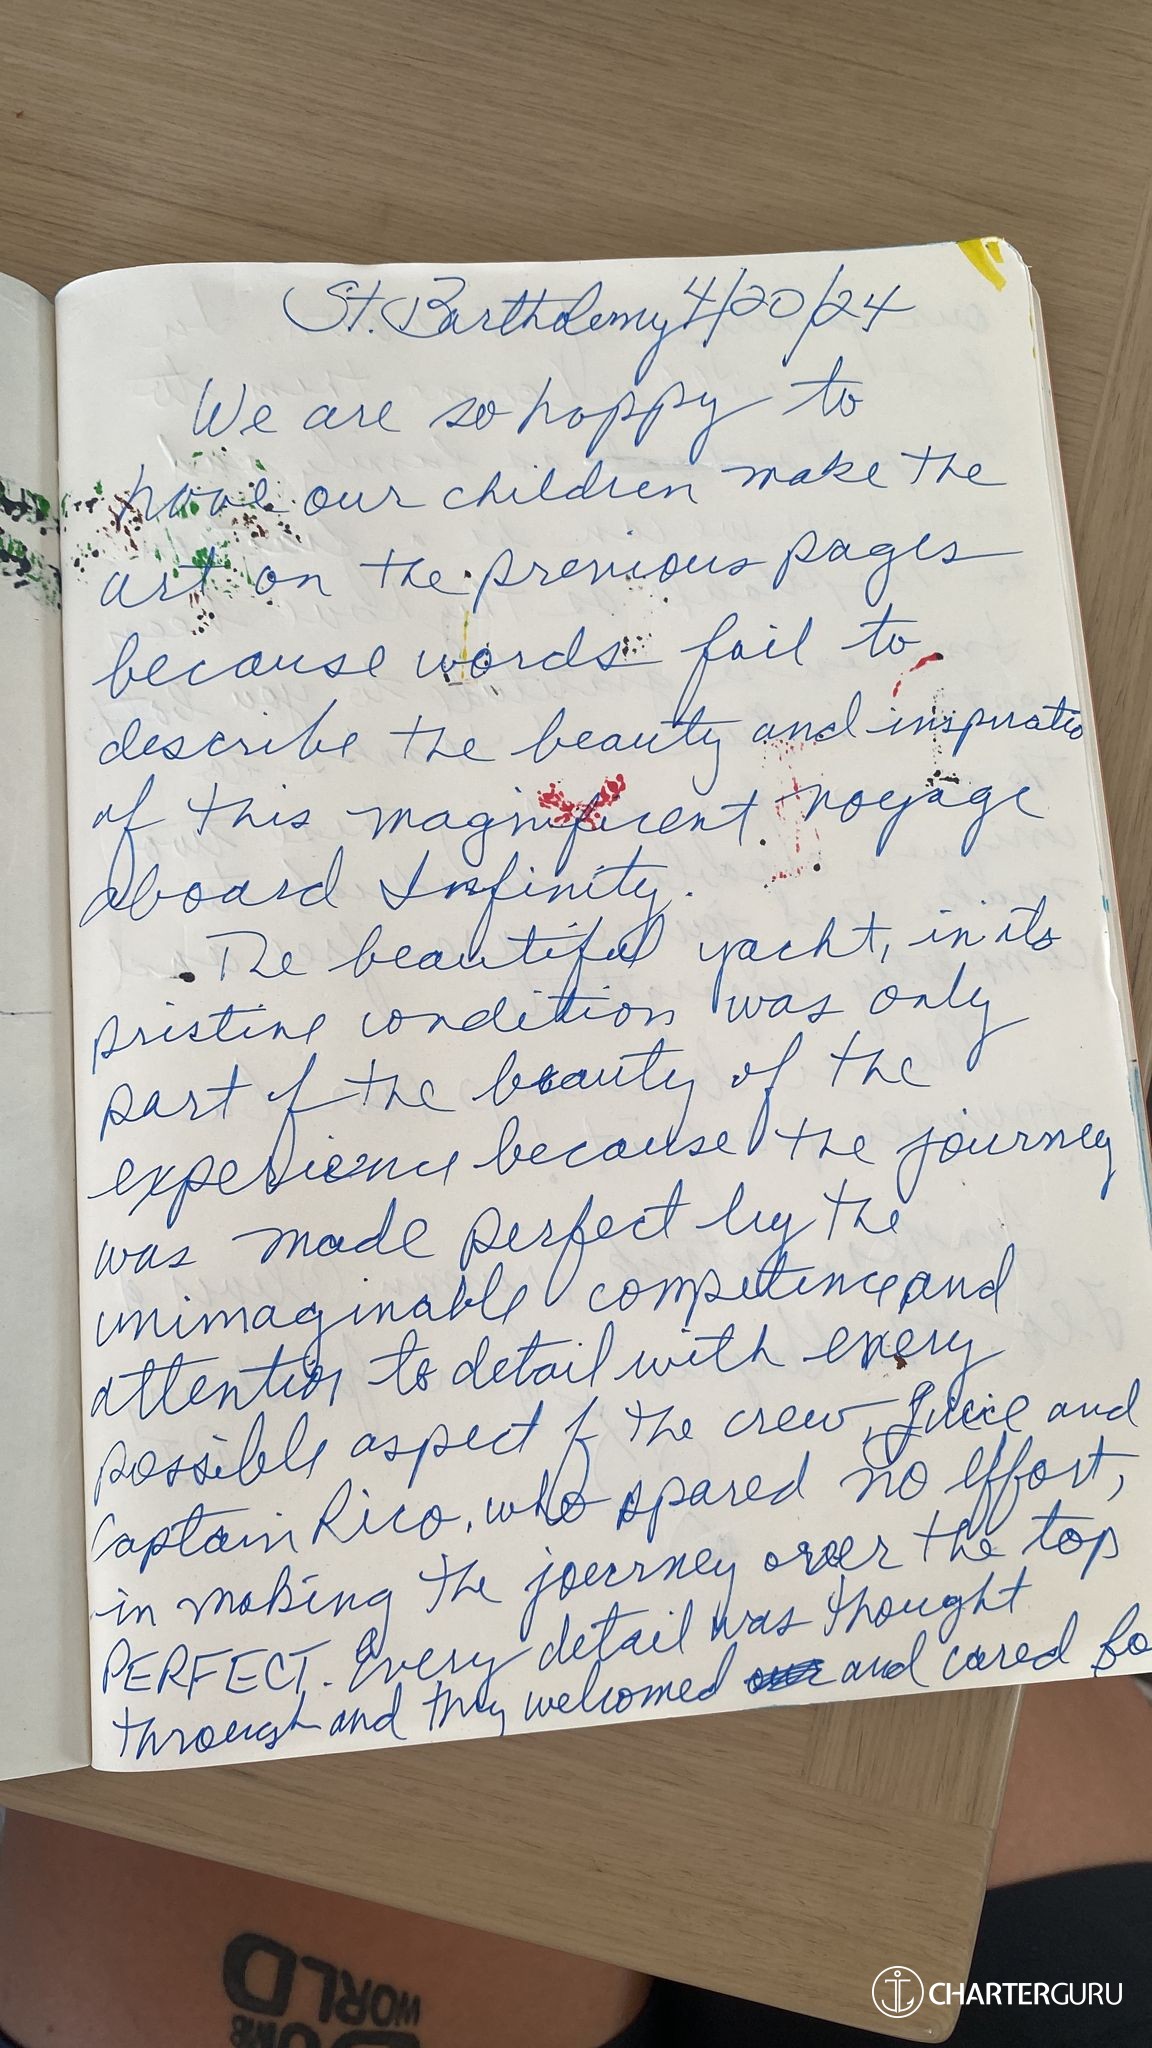 St. Barthelemy 4/20/24
We are so happy to
have our children make the
art on the previous pages
because words fail to
describe the beauty and inspiratio
of this magnificent voyage
aboard Infinity.
The beautiful yacht, in its
pristine condition was only
part of the beauty of the
experience because the journey
was made perfect by the
unimaginable competence and
attention to detail with every
possible aspect of the crew, and
Captain Rico, who spared no effort,
in making the journey over the top
PERFECT. Every detail was thought
through and they welcomed and cared fo
WORLD
CHARTERGURU